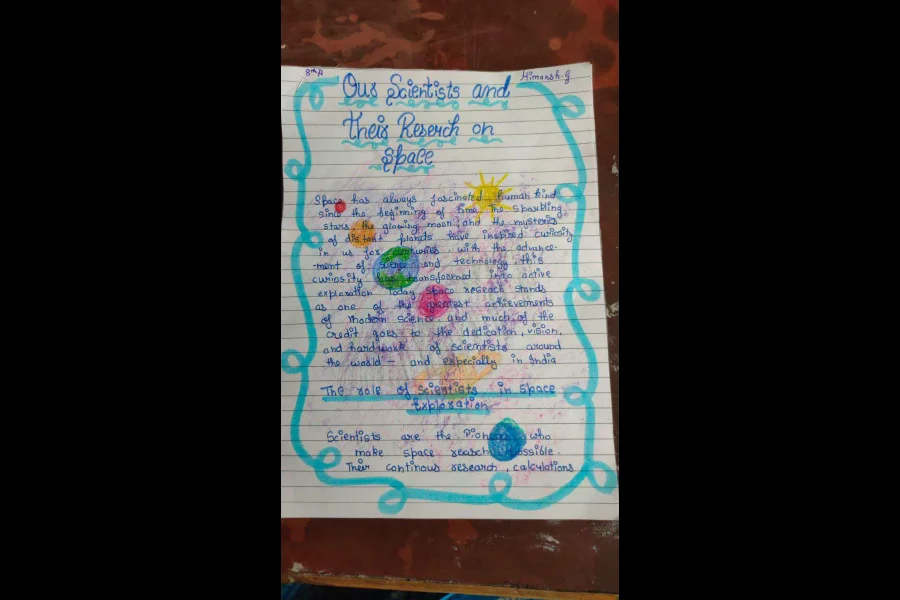 8th A
Himansh.G
Our Scientists and
their Reserch on
Space
Space has always fascinated human kind
since the beginning of time The sparkling
stars, the glowing moon, and the mysteries
of distant planets have inspired curiosity
in us for centuries with the advance-
ment of science and technology this
curiosity has transformed into active
exploration Today space research stands
as one of the greatest achievements
of modern science and much of the
credit goes to the dedication, vision,
and hardwork of scientists around
the world - and especially in India
The role of scientists in space
Exploration
Scientists are the Pioneers who
make space reasch possible.
Their continous research, calculations